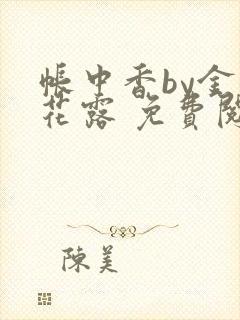 帳中香by金
花露 免費閱
陳美